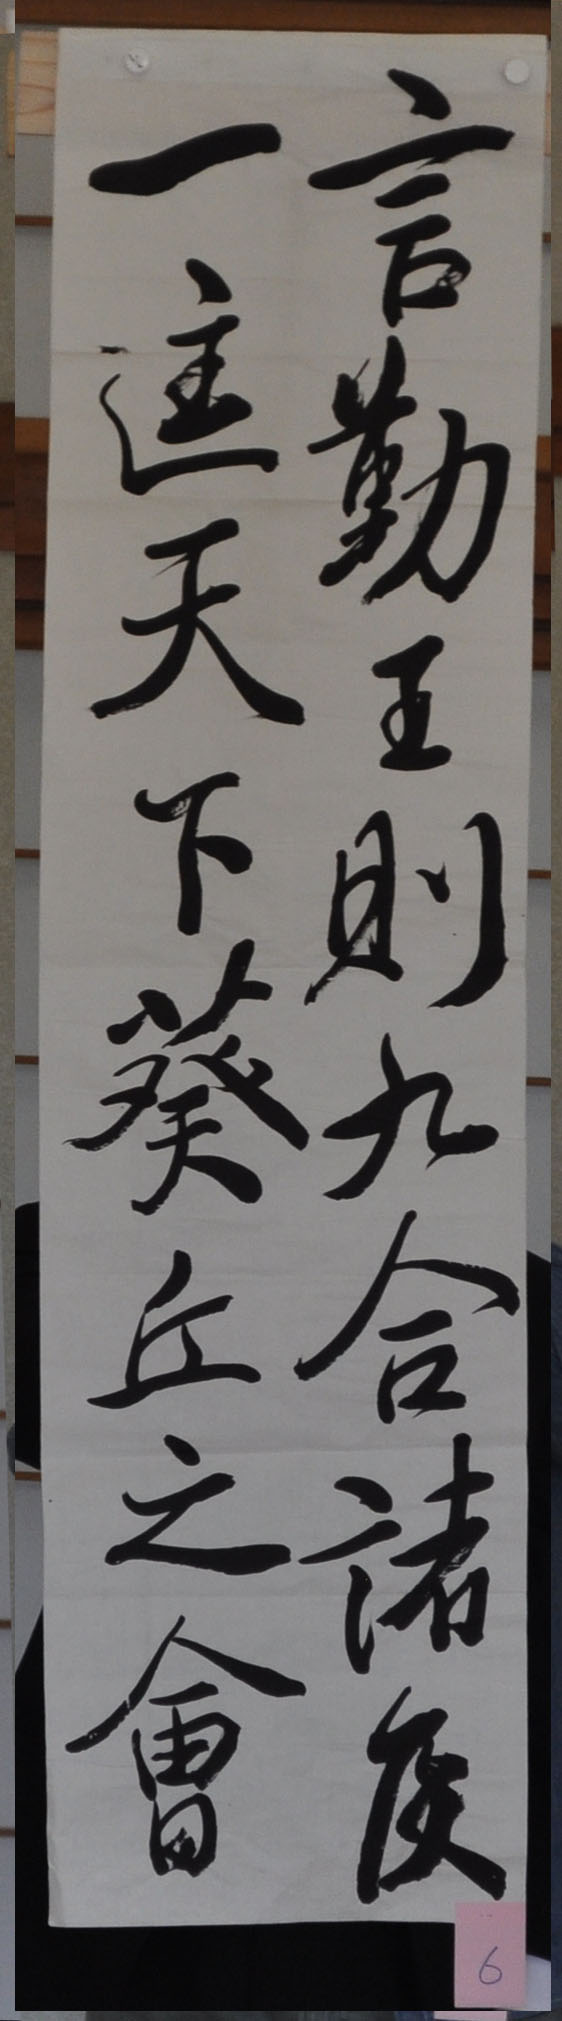 言勤王則九合諸侯
一匡天下葵丘之會
6